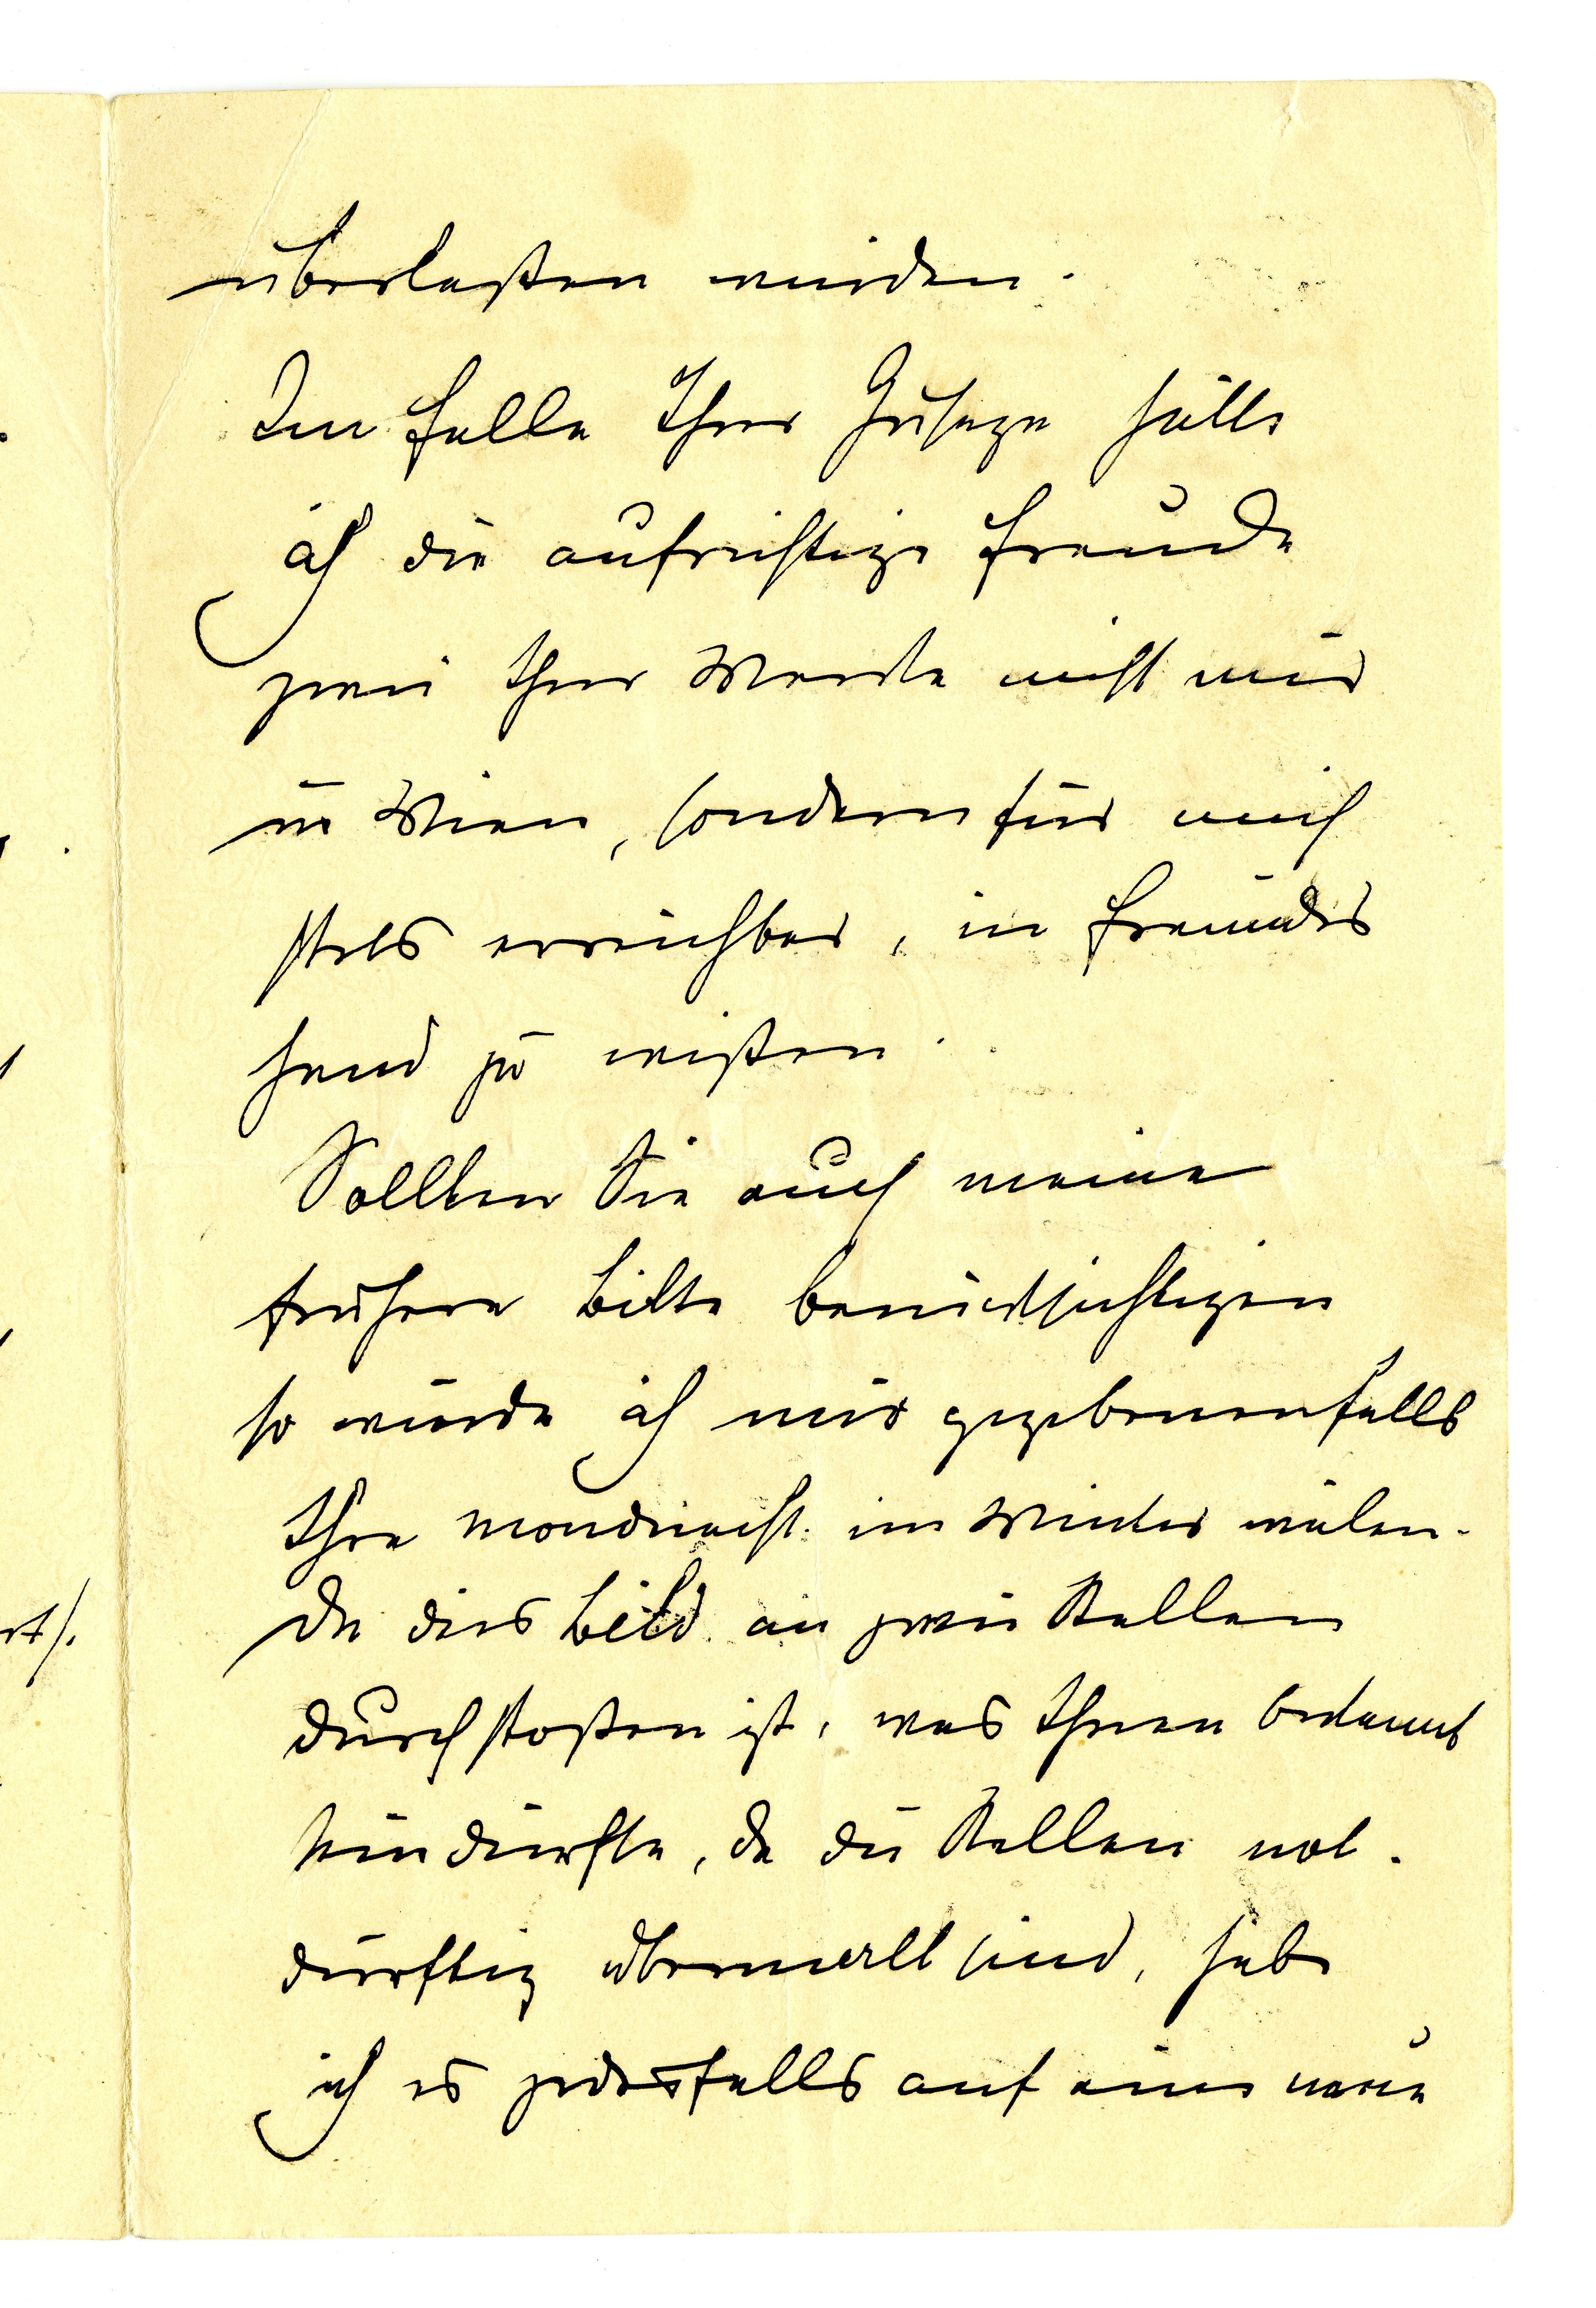 überlaßen würden.
Im Falle Ihrer Zusage hätte
ich die aufrichtige Freude
zwei Ihrer Werke nicht nur
in Wien, sondern für mich
stets erreichbar, in Freundes
hand zu wißen.
Sollten Sie auch meine
frühere Bitte berücksichtigen
so würde ich mir gegebenenfalls
Ihre Mondnacht im Winter wälen.
Da dies Bild an zwei Stellen
durchstoßen ist, was Ihnen bekannt
sein dürfte, da die Stellen not-
dürftig übermalt sind, habe
ich es jedesfalls auf eine neue